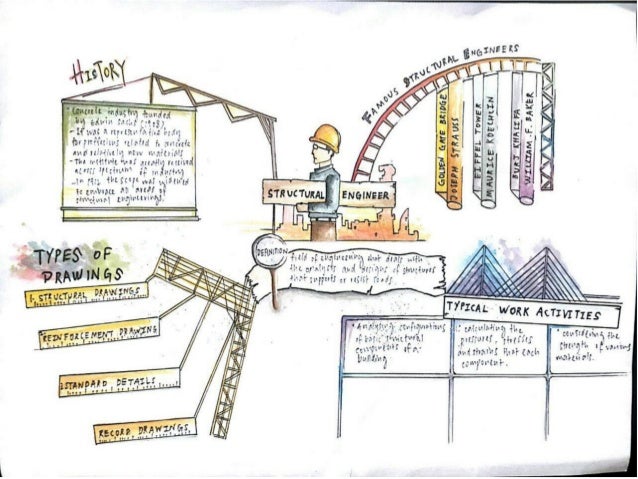 HISTORY
- Concrete industry founded
by Edwin Sachs (1908)
- It was a representative body
for professions related to concrete
and relatively new materials
- The institute was greatly received
across spectrum of industry
- In 1912 the scope was widened
to embrace all areas of
structural engineering.
FAMOUS STRUCTURAL ENGINEERS
GOLDEN GATE BRIDGE
JOSEPH STRAUSS
EIFFEL TOWER
MAURICE KOECHLIN
BURJ KHALIFA
WILLIAM F. BAKER
STRUCTURAL ENGINEER
DEFINITION
field of engineering that deals with
the analysis and designs of structures
that supports or resist loads.
TYPES OF
DRAWINGS
1. STRUCTURAL DRAWINGS
REINFORCEMENT DRAWING
STANDARD DETAILS
RECORD DRAWINGS
TYPICAL WORK ACTIVITIES
• Analysing configurations
of basic structural
components of a
building
• calculating the
pressures, stresses
and strains that each
component.
• considering the
strength of various
materials.